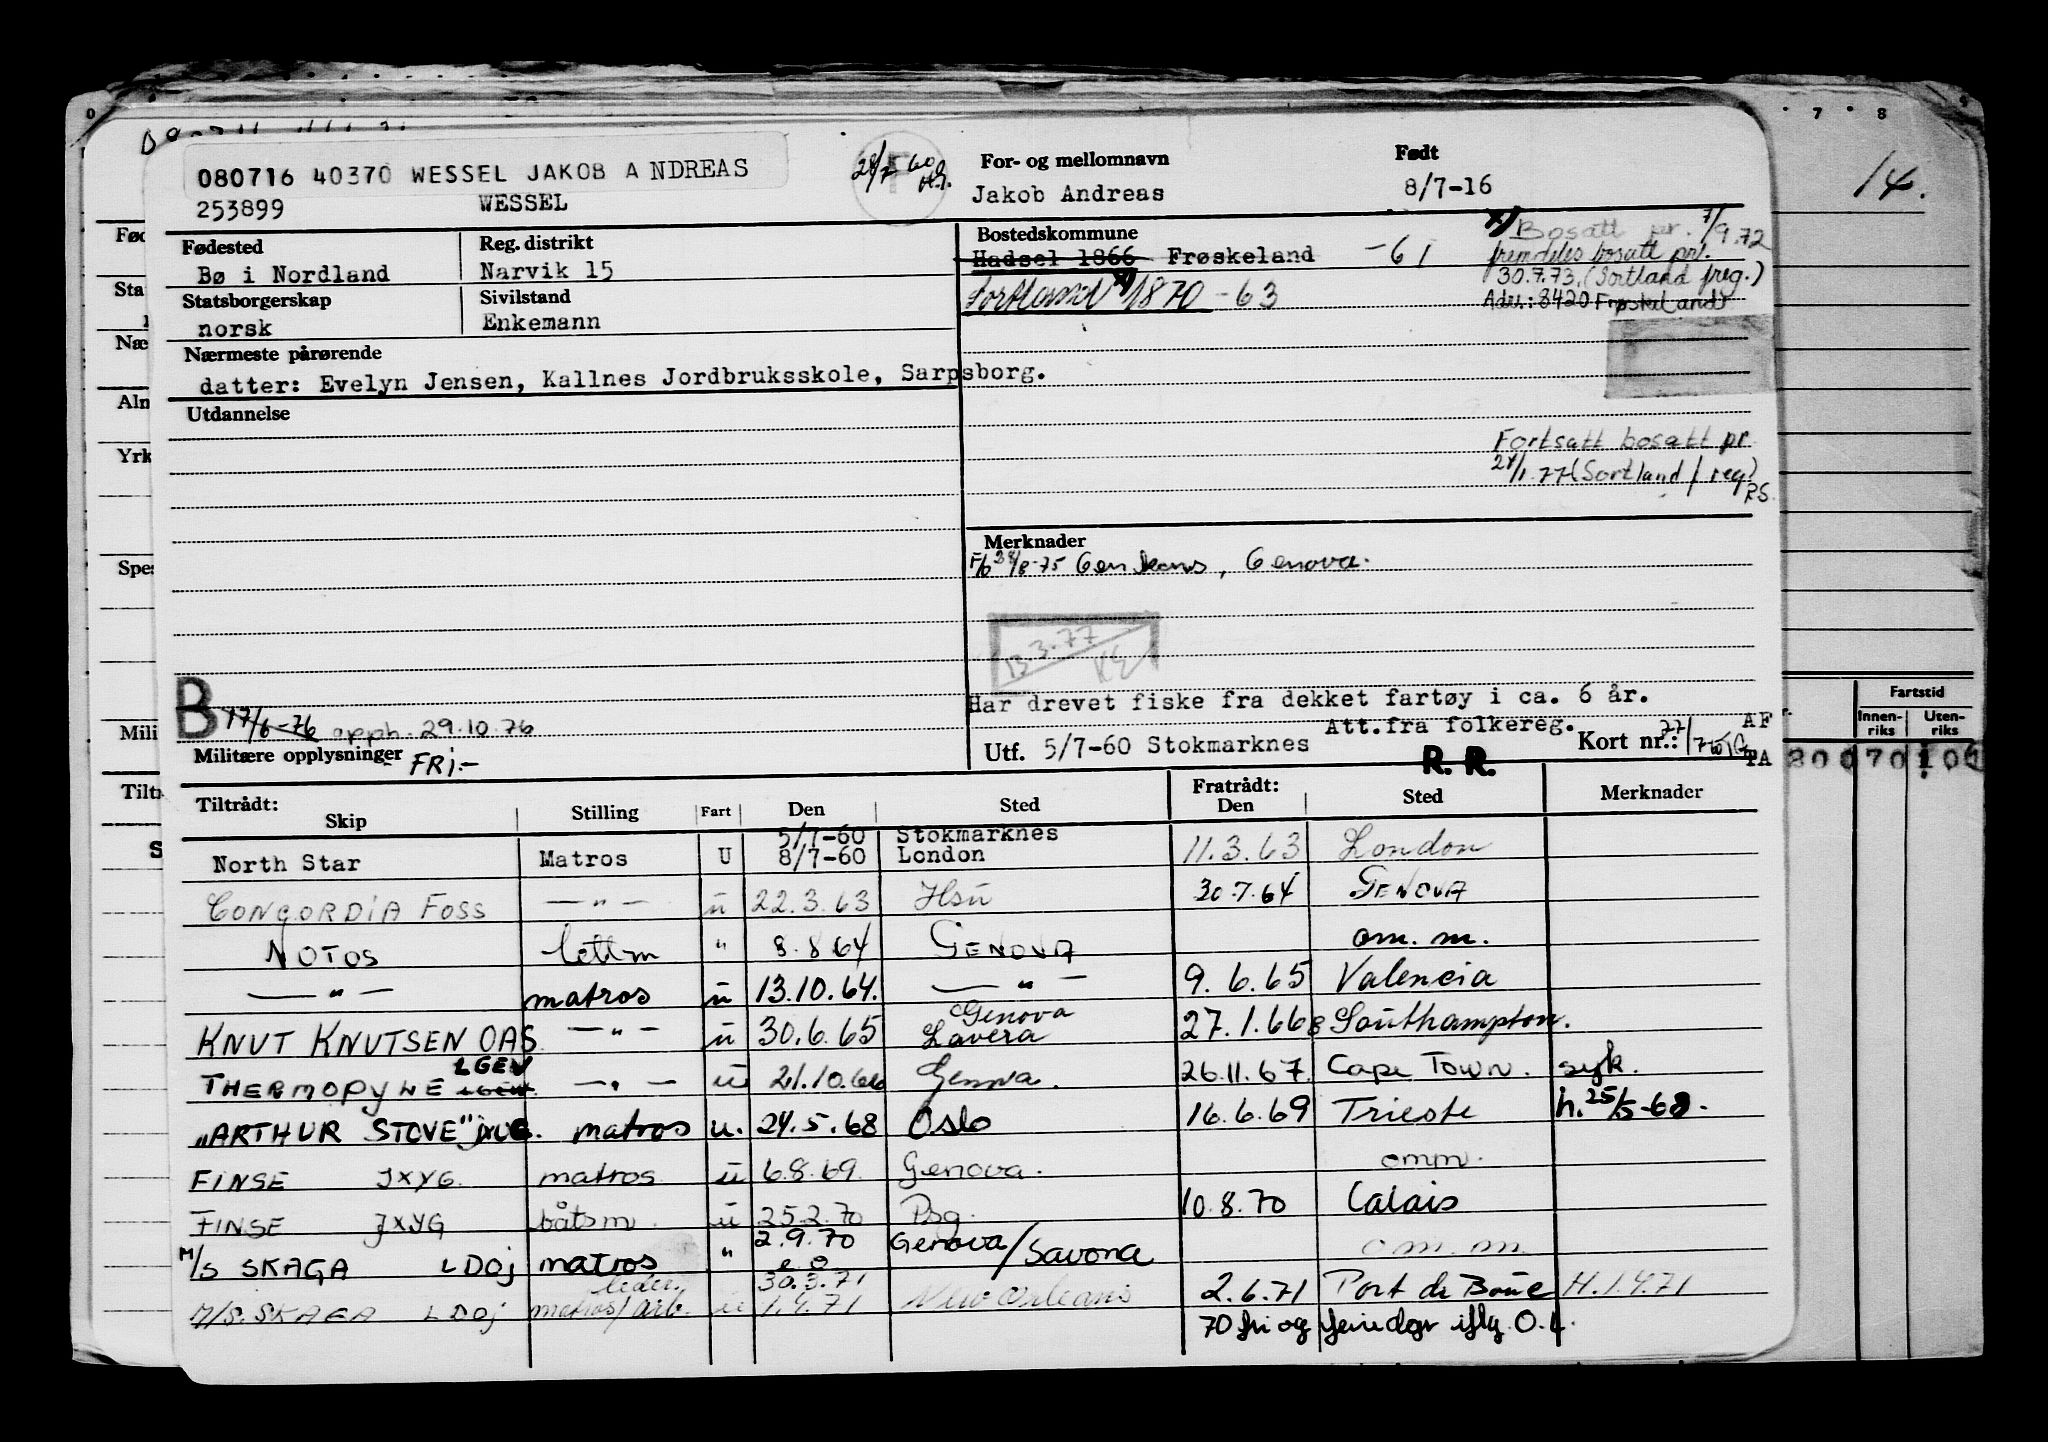 14.
080716 40370 WESSEL JAKOB ANDREAS
253899 WESSEL
28/7 60
For- og mellomnavn
Jakob Andreas
Født
8/7-16
Fødested
Bø i Nordland
Reg. distrikt
Narvik 15
Statsborgerskap
norsk
Sivilstand
Enkemann
Bostedskommune
Hadsel 1866 Frøskeland -61
Sortland x) 1870 -63
x) Bosatt pr. 7/9.72
fremdeles bosatt pr.
30.7.73. (Sortland freg.)
Adr.: 8420 Frøskeland
Nærmeste pårørende
datter: Evelyn Jensen, Kallnes Jordbruksskole, Sarpsborg.
Utdannelse
Fortsatt bosatt pr.
24/1.77 (Sortland f reg)
RS.
Merknader
8-75 Genova.
13.3.77
Har drevet fiske fra dekket fartøy i ca. 6 år.
Att.fra folkereg.
B 17/6-76 opph. 29.10.76
Militære opplysninger FRI.-
Utf. 5/7-60 Stokmarknes
R. R.
Kort nr.:
AF
TA
Fartstid
Innen-riks
Uten-riks
Tiltrådt:
Skip Stilling Fart Den Sted
Fratrådt:
Den Sted Merknader
5/7-60 Stokmarknes
North Star Matros U 8/7-60 London 11.3.63 London
CONCORDIA FOSS —"— u 22.3.63 Hsu 30.7.64 GENOVA
NOTOS lettm " 8.8.64 GENOVA om. m.
—"— matros u 13.10.64. —"— 9.6.65 Valencia
KNUT KNUTSEN OAS —"— u 30.6.65 Genova Lavera 27.1.66 Southampton.
THERMOPYLE LGEV —"— u 21.10.66 Genova. 26.11.67. Cape Town. syk.
"ARTHUR STOVE" matros u. 24.5.68 Oslo 16.6.69 Trieste h. 25/5-68.
FINSE JXYG. matros u 6.8.69. Genova. omm.
FINSE JXYG båtsm. u 25.2.70 Psg. 10.8.70 Calais
M/S SKAGA LDOj matros " 2.9.70 Genova/Savona om.m.
30.3.71
M/S. SKAGA LDOj matros/leder arb. u 1.4.71 New Orleans 2.6.71 Port de Boue H.1.4.71
70 fri og feriedgr iflg O.L.